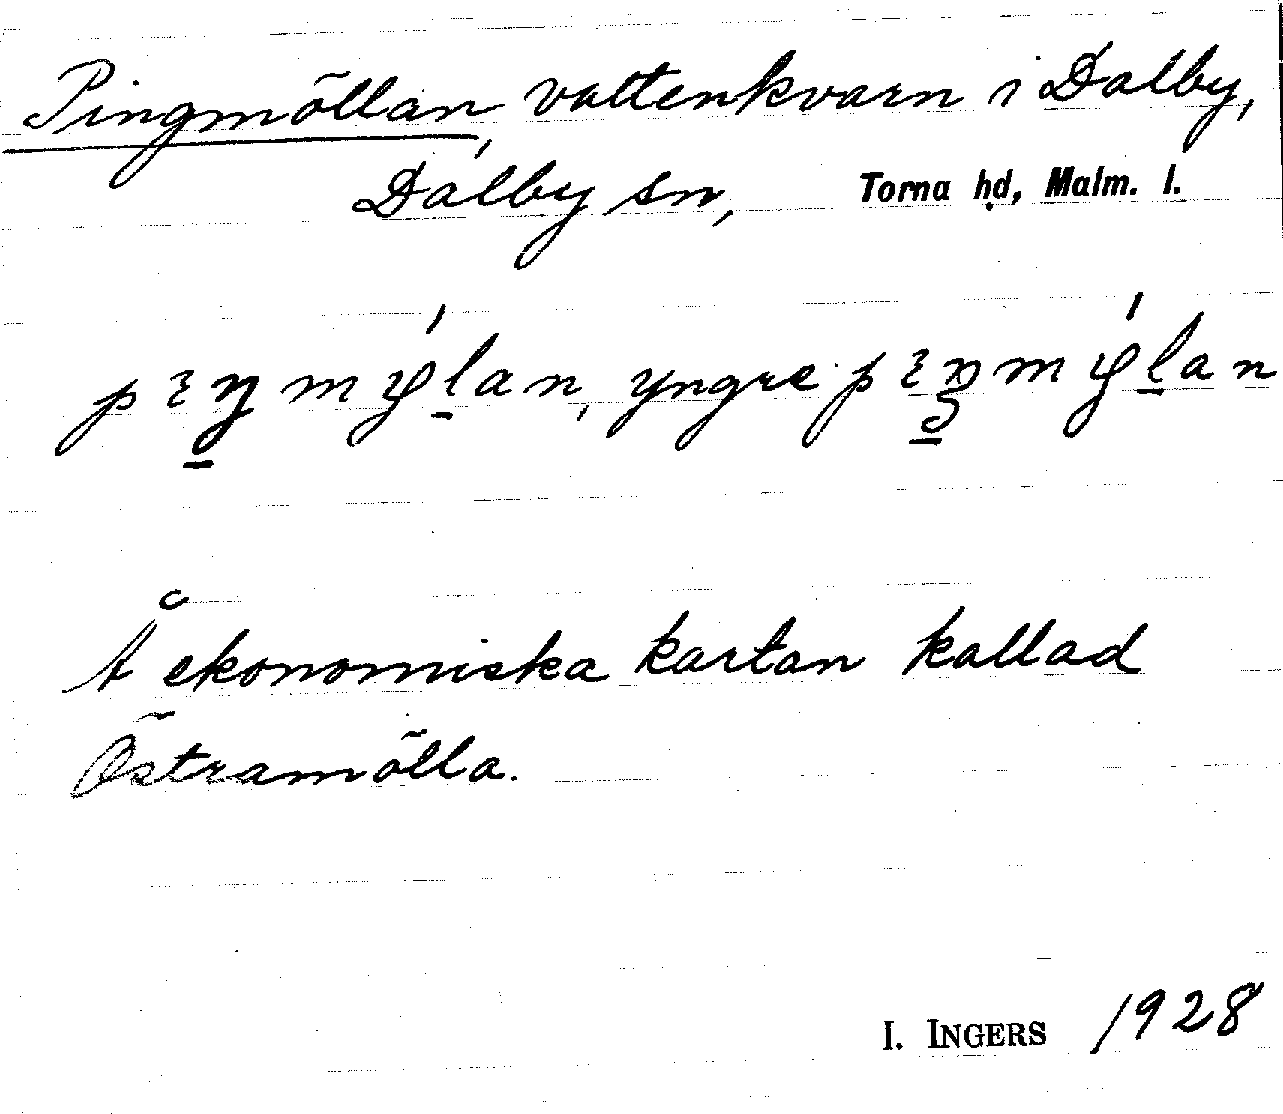 Pingmöllan, vattenkvarn i Dalby,
Dalby sn, Torna hd, Malm. l.
yngre
Å ekonomiska kartan kallad
Östramölla.
I. INGERS 1928